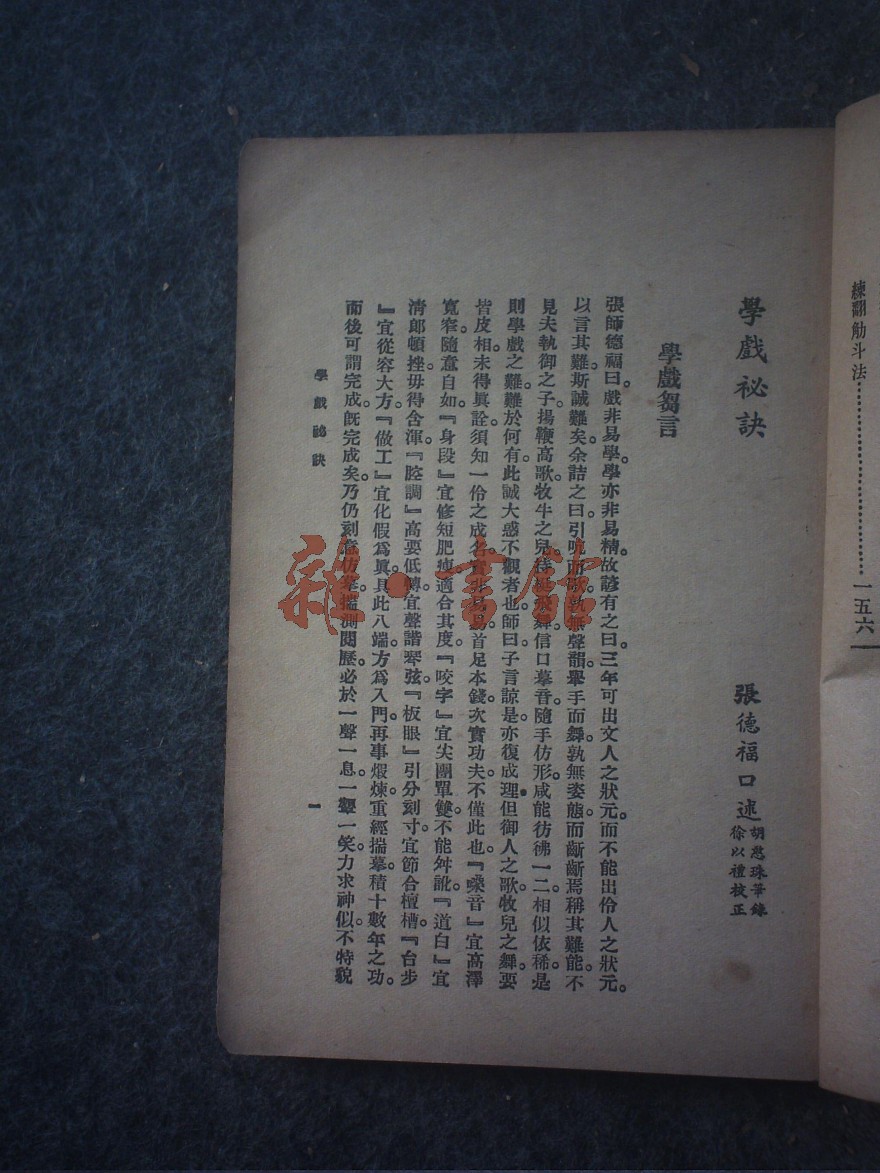 練翻觔斗法……………………一五六
學戲祕訣
張德福口述
胡憨珠筆錄
徐以禮校正
學戲芻言
張師德福曰。戲非易學。學亦非易精。故諺有之曰。三年可出文人之狀元。而不能出伶人之狀元。
以言其難。斯誠難矣。余詰之曰。引吭而歌。孰無聲韻。舉手而舞。孰無姿態。而齗齗焉稱其難能。不
見夫執御之子。揚鞭高歌。牧牛之兒。持梃飛舞。信口摹音。隨手仿形。咸能彷彿一二。相似依稀。是
則學戲之難。難於何有。此誠大惑不觀者也。師曰。子言諒是。亦復成理。但御人之歌。牧兒之舞。要
皆皮相。未得眞詮。須知一伶之成名。實非易易。首足本錢。次實功夫。不僅此也。『嗓音』宜高澤
寬窄。隨意自如。『身段』宜修短肥瘦。適合其度。『咬字』宜尖團單雙。不能舛訛。『道白』宜
淸郎頓挫。毋得含渾。『腔調』高要低轉。宜聲諧琴弦。『板眼』引分刻寸。宜節合檀槽。『台步
』宜從容大方。『做工』宜化假爲眞。具此八端。方爲入門。再事煅煉。重經揣摹。積十數年之功。
而後可謂完成。旣完成矣。乃仍刻意仿摹。揣測閱歷。必於一聲一息。一顰一笑。力求神似。不特貌
學戲祕訣
一
雜·書館